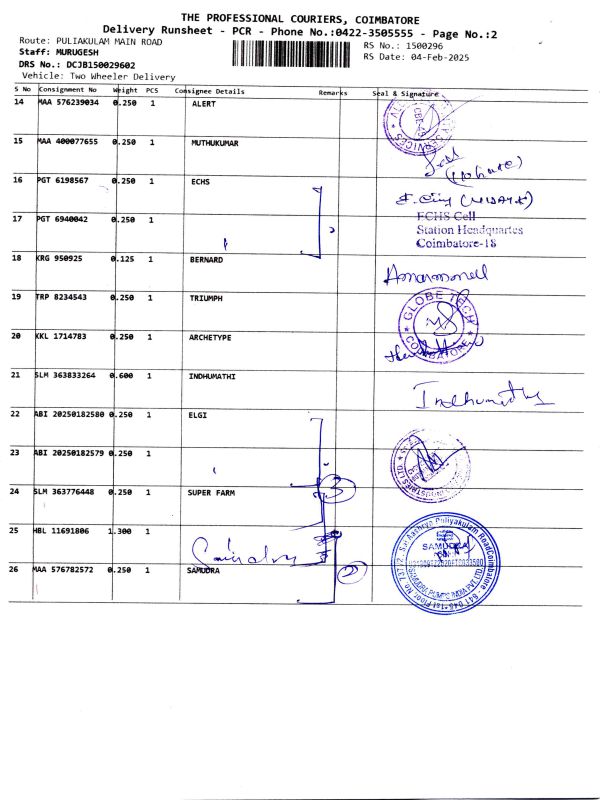 THE PROFESSIONAL COURIERS, COIMBATORE
Delivery Runsheet - PCR - Phone No.:0422-3505555 - Page No.:2
Route: PULIAKULAM MAIN ROAD
RS No.: 1500296
Staff: MURUGESH
RS Date: 04-Feb-2025
DRS No.: DCJB150029602
Vehicle: Two Wheeler Delivery
S No Consignment No Weight PCS Consignee Details Remarks Seal & Signature
14 MAA 576239034 0.250 1 ALERT
15 MAA 400077655 0.250 1 MUTHUKUMAR
16 PGT 6198567 0.250 1 ECHS
17 PGT 6940042 0.250 1
ECHS Cell
Station Headquartes
Coimbatore-18
18 KRG 950925 0.125 1 BERNARD
19 TRP 8234543 0.250 1 TRIUMPH
GLOBE TECH
COIMBATORE
20 KKL 1714783 0.250 1 ARCHETYPE
21 SLM 363833264 0.600 1 INDHUMATHI
Indhumathy
22 ABI 20250182580 0.250 1 ELGI
23 ABI 20250182579 0.250 1
24 SLM 363776448 0.250 1 SUPER FARM
3
25 HBL 11691806 1.300 1
26 MAA 576782572 0.250 1 SAMUDRA
2
SAMUDRA